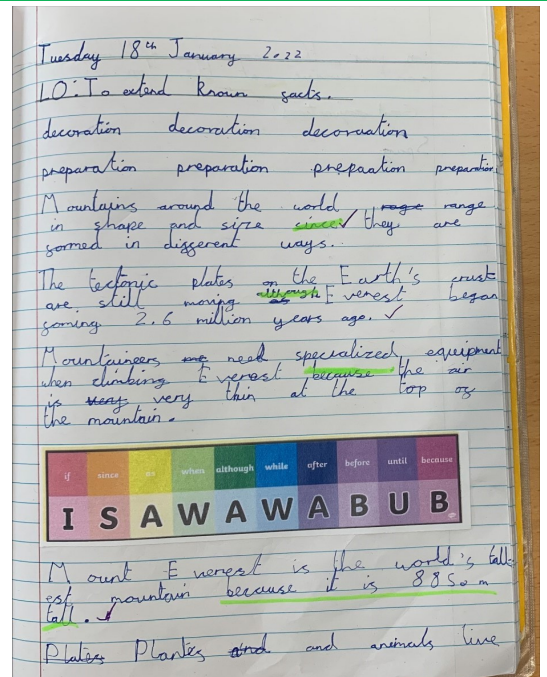 Tuesday 18th January 2022
LO: To extend known facts.
decoration decoration decoruation
preparation preparation prepaation preparation
Mountains around the world rage range
in shape and size since they are
formed in different ways.
The tectonic plates on the Earth's crust
are still moving although Everest began
foming 2.6 million years ago.
Mountaineers need specialized equipment
when climbing Everest because the air
is very very thin at the top of
the mountain.
if since as when although while after before until because
I S A W A W A B U B
Mount Everest is the world's tall-
est mountain because it is 8850m
tall.
Plates Plantes and and animals live